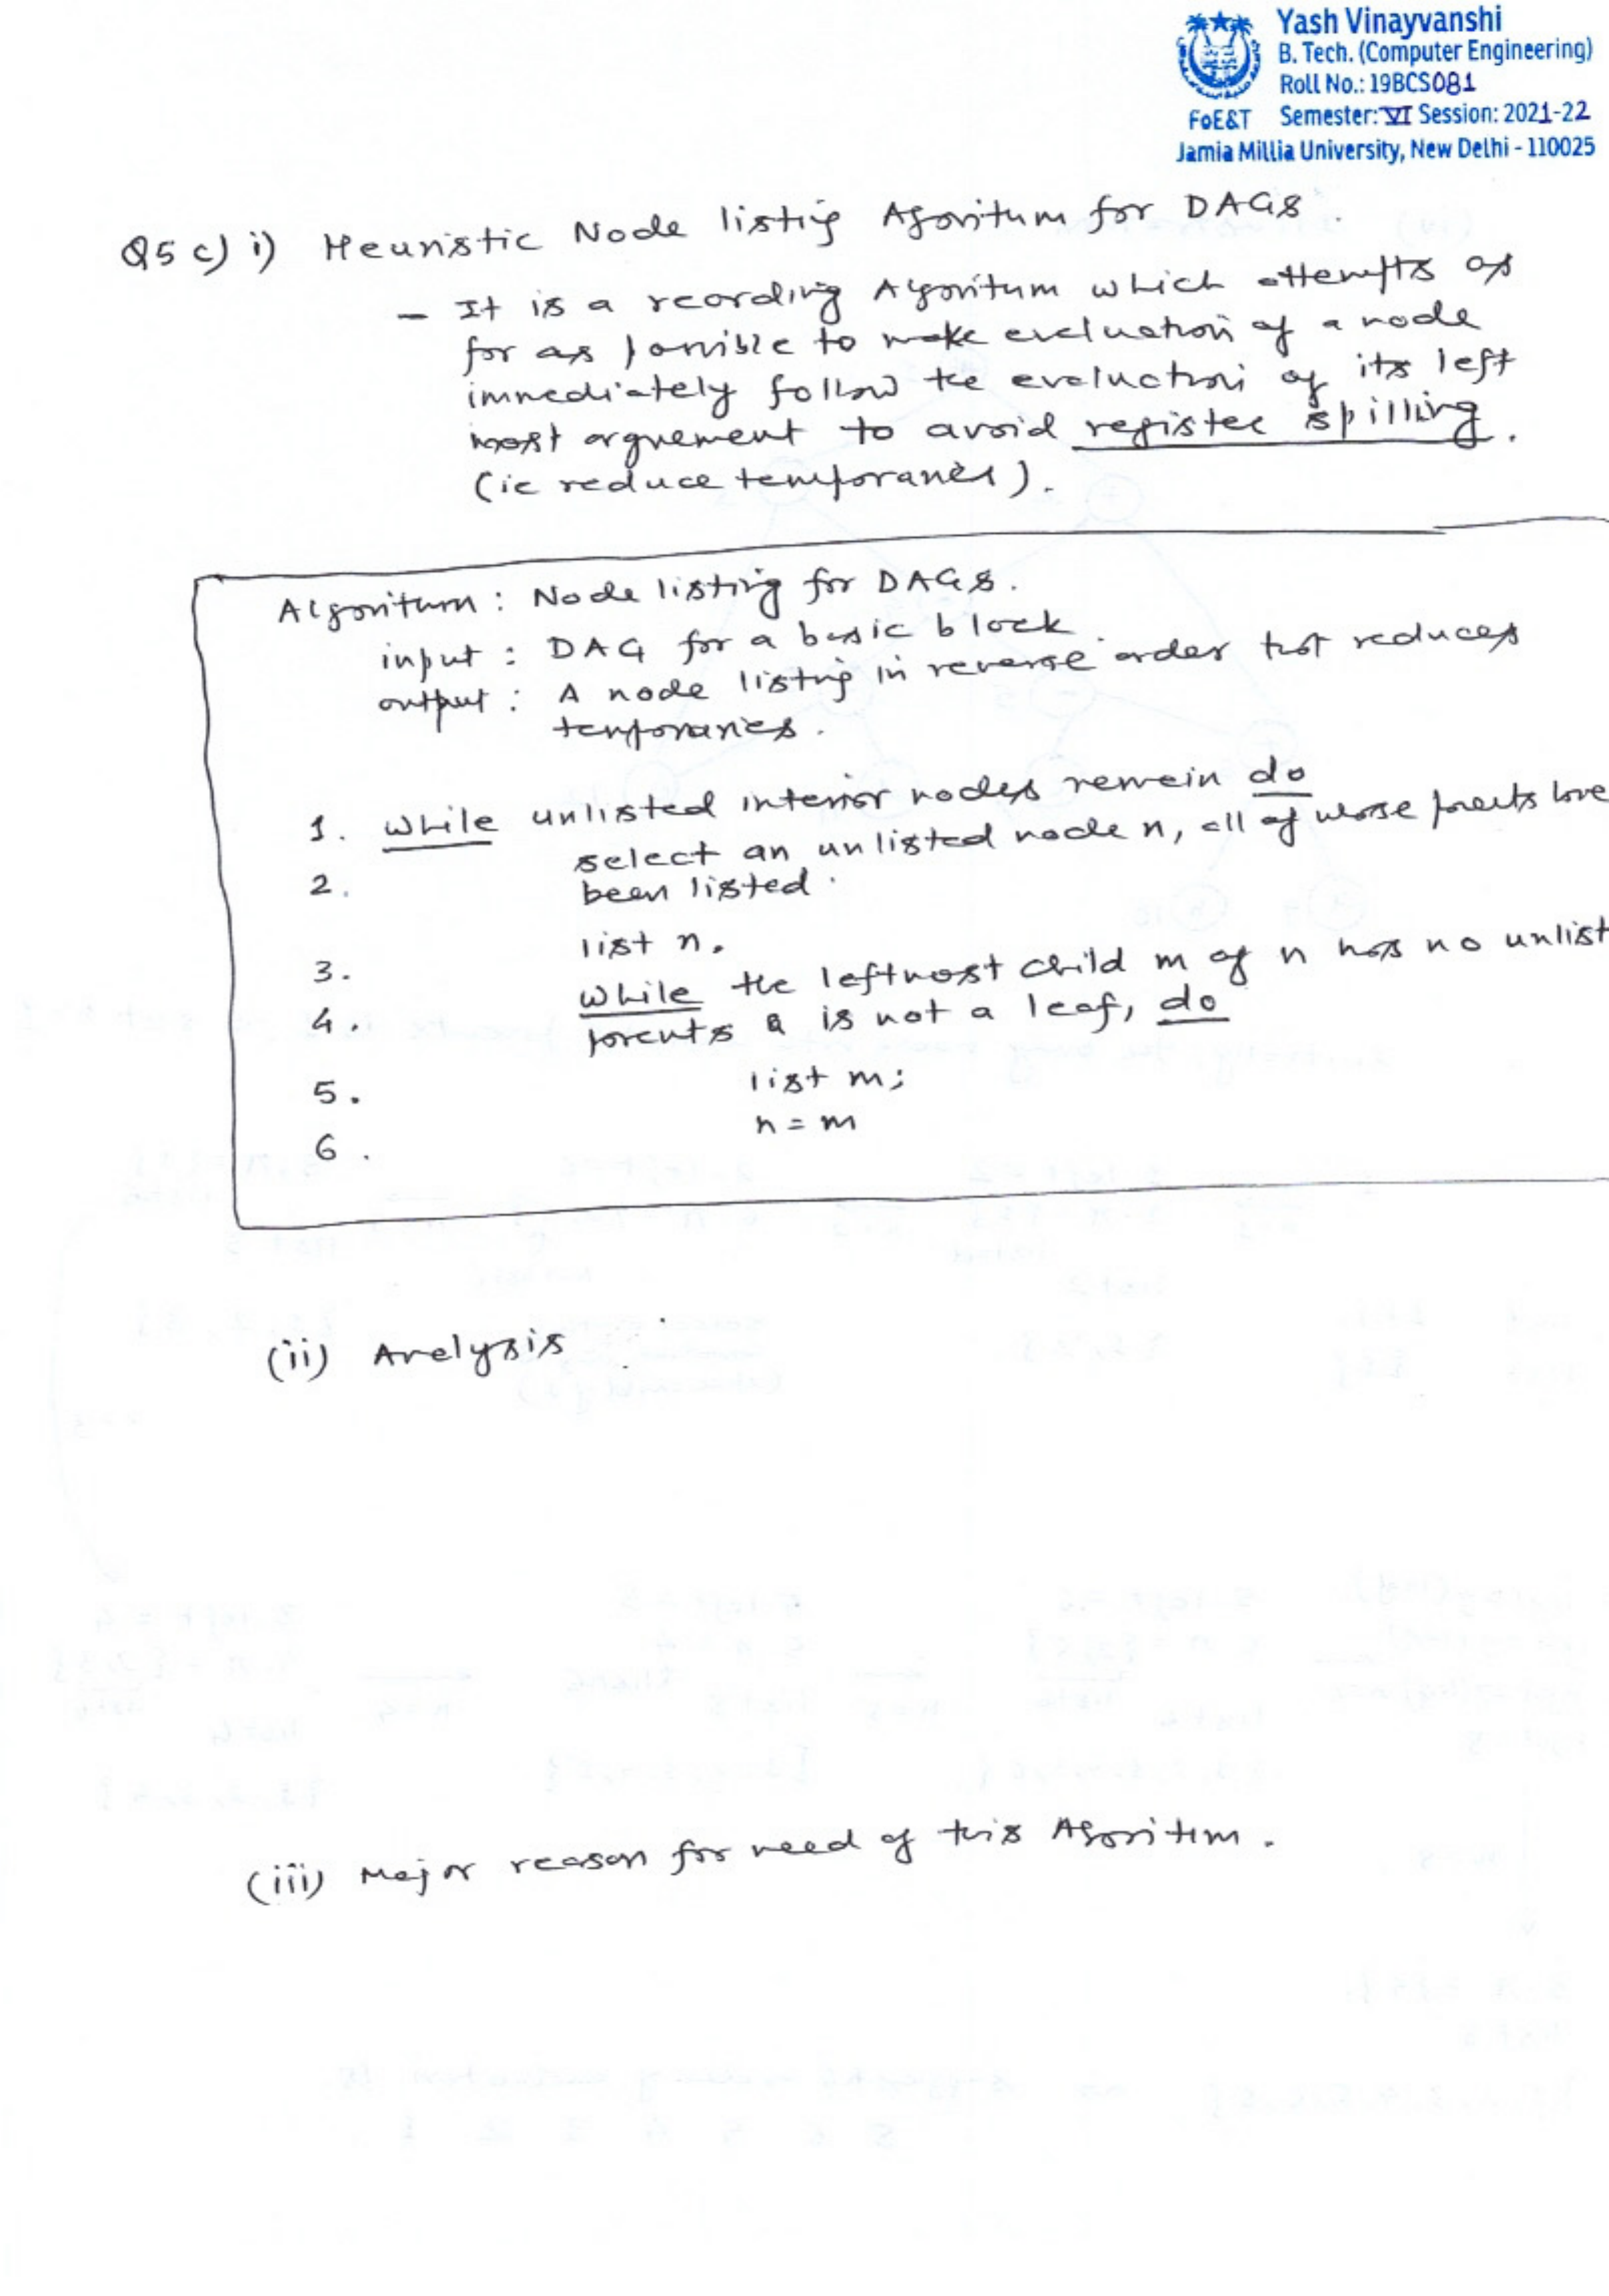 Yash Vinayvanshi
B. Tech. (Computer Engineering)
Roll No.: 19BCS081
FoE&T Semester: VI Session: 2021-22
Jamia Millia University, New Delhi - 110025
Q5 c) i) Heuristic Node listing Algorithm for DAGs.
- It is a reording Algorithm which attempts as
far as possible to make evaluation of a node
immediately follow the evaluation of its left
most arguement to avoid register spilling.
(ie reduce temporaries).
Algorithm: Node listing for DAGs.
input: DAG for a basic block.
output: A node listing in reverse order that reduces
temporaries.
1. while unlisted interior nodes remain do
2. select an unlisted node n, all of whose parents have
been listed.
3. list n.
4. while the leftmost child m of n has no unlist
parents & is not a leaf, do
5. list m;
6. n = m
(ii) Analysis
(iii) Major reason for need of this Algorithm.